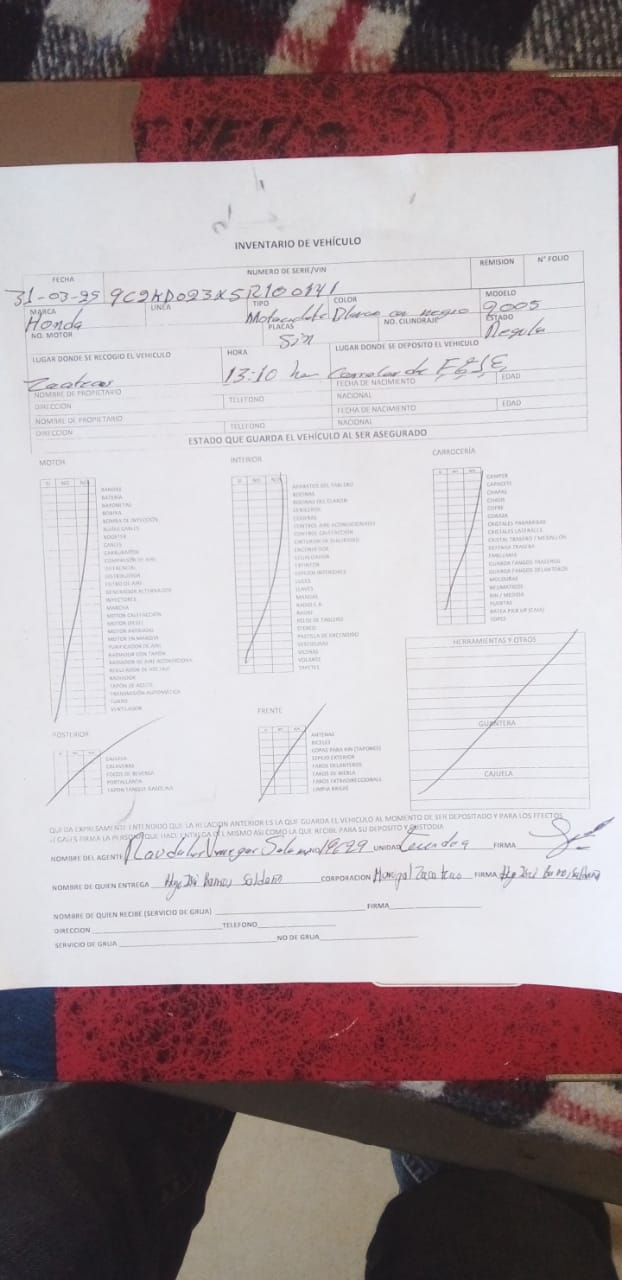 INVENTARIO DE VEHÍCULO
FECHA NUMERO DE SERIE/VIN REMISION N° FOLIO
31-03-25 9C2KD023X5R100141
MARCA LINEA TIPO COLOR MODELO
Honda Motocicleta Blanco con negro 2005
NO. MOTOR PLACAS NO. CILINDRAJE ESTADO
Sin Regular
LUGAR DONDE SE RECOGIO EL VEHICULO HORA LUGAR DONDE SE DEPOSITO EL VEHÍCULO
Zacatecas 13:10 hrs
NOMBRE DE PROPIETARIO FECHA DE NACIMIENTO EDAD
DIRECCION TELEFONO NACIONAL
NOMBRE DE PROPIETARIO FECHA DE NACIMIENTO EDAD
DIRECCION TELEFONO NACIONAL
ESTADO QUE GUARDA EL VEHÍCULO AL SER ASEGURADO
MOTOR
BATERIA
BAYONETAS
BOBINA
BOMBA DE INYECCIÓN
CABLES
CARBURADOR
COMPRESOR DE AIRE
DIFERENCIAL
DISTRIBUIDOR
FILTRO DE AIRE
GENERADOR ALTERNADOR
INYECTORES
MARCHA
MOTOR CALEFACCIÓN
MOTOR DIESEL
MOTOR EN MARCHA
PURIFICADOR DE AIRE
RADIADOR CON TAPÓN
RADIADOR DE AIRE ACONDICIONA
REGULADOR DE VOLTAJE
RADIADOR
TAPON DE ACEITE
TRANSMISIÓN AUTOMATICA
TURBO
VENTILADOR
INTERIOR
APARATOS DEL TABLERO
BOCINAS
BOCINAS DEL CLAXON
CENICEROS
CONTROL AIRE ACONDICIONADO
CONTROL CALEFACCIÓN
CINTURON DE SEGURIDAD
ENCENDEDOR
ECUALIZADOR
EXTINTOR
ESPEJOS INTERIORES
LUCES
LLAVES
MANIJAS
RADIO C.B.
RADIO
RELOJ DE TABLERO
STEREO
PASTILLA DE ENCENDIDO
VESTIDURAS
VICERAS
VOLANTE
TAPETES
CARROCERÍA
CAMPER
CAPACETE
CHAPAS
CHASIS
COFRE
CORAZA
CRISTALES PARABRISAS
CRISTALES LATERALES
CRISTAL TRASERO / MEDALLON
DEFENSA TRASERA
EMBLEMAS
GUARDA FANGOS TRASEROS
GUARDA FANGOS DELANTEROS
MOLDURAS
NEUMATICOS
RIN / MEDIDA
PUERTAS
BATEA PICK UP (CAJA)
TOPES
HERRAMIENTAS Y OTROS
GUANTERA
CAJUELA
POSTERIOR
CAJUELA
CALAVERAS
FOCOS DE REVERSA
PORTALLANTA
TAPON TANQUE GASOLINA
FRENTE
ANTENAS
BICELES
COPAS PARA RIN (TAPONES)
ESPEJO EXTERIOR
FAROS DELANTEROS
FAROS DE NIEBLA
FAROS EXTRADIRECCIONALES
LIMPIA BRISAS
QUEDA EXPRESAMENTE ENTENDIDO QUE LA RELACIÓN ANTERIOR ES LA QUE GUARDA EL VEHÍCULO AL MOMENTO DE SER DEPOSITADO Y PARA LOS EFECTOS
LEGALES FIRMA LA PERSONA QUE HACE ENTREGA DEL MISMO ASI COMO LA QUE RECIBE PARA SU DEPOSITO Y CUSTODIA
NOMBRE DEL AGENTE UNIDAD FIRMA
NOMBRE DE QUIEN ENTREGA CORPORACION Municipal Zacatecas FIRMA
NOMBRE DE QUIEN RECIBE (SERVICIO DE GRUA) FIRMA
DIRECCION TELEFONO
SERVICIO DE GRUA NO DE GRUA